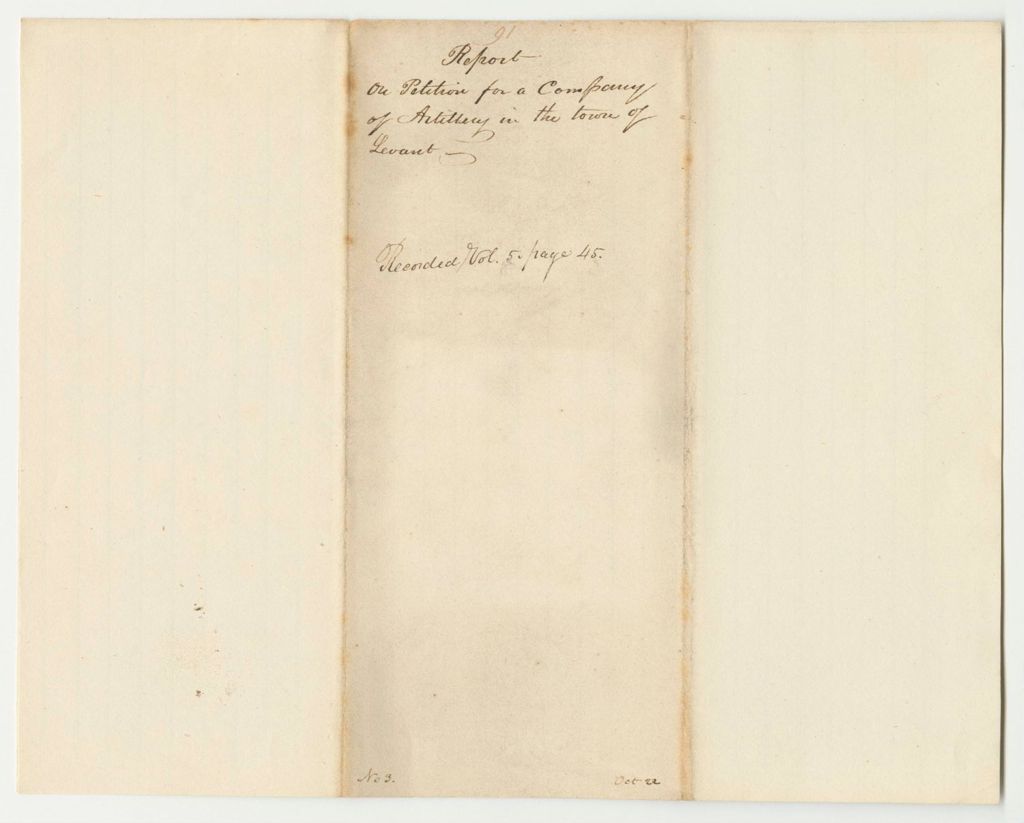 91
Report
On Petition for a Company
of Artillery in the town of
Levant
Recorded Vol. 5. page 45.
No 3.
Oct 22